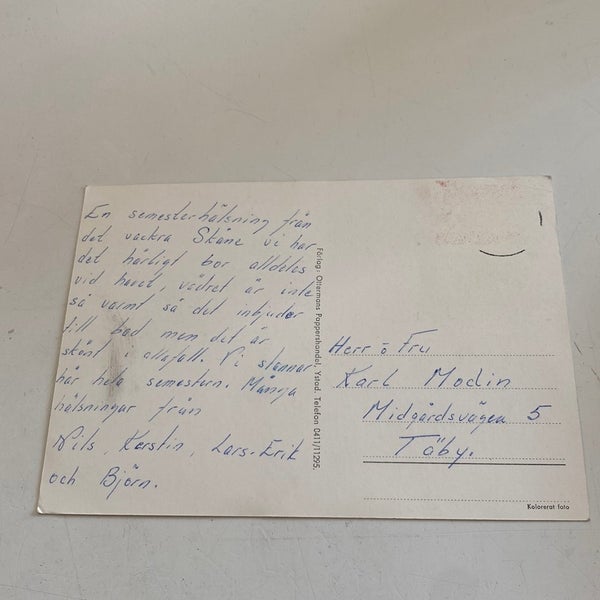 En semesterhälsning från
det vackra Skåne vi har
det härligt bor alldeles
vid havet, vädret är inte
så varmt så det inbjuder
till bad men det är
skönt i allafall. Vi stannar
här hela semestern. Många
hälsningar från
Nils, Kerstin, Lars-Erik
och Björn.
Förlag: Ottermans Pappershandel, Ystad. Telefon 0411/11295.
Herr o Fru
Karl Modin
Midgårdsvägen 5
Täby.
Kolorerat foto